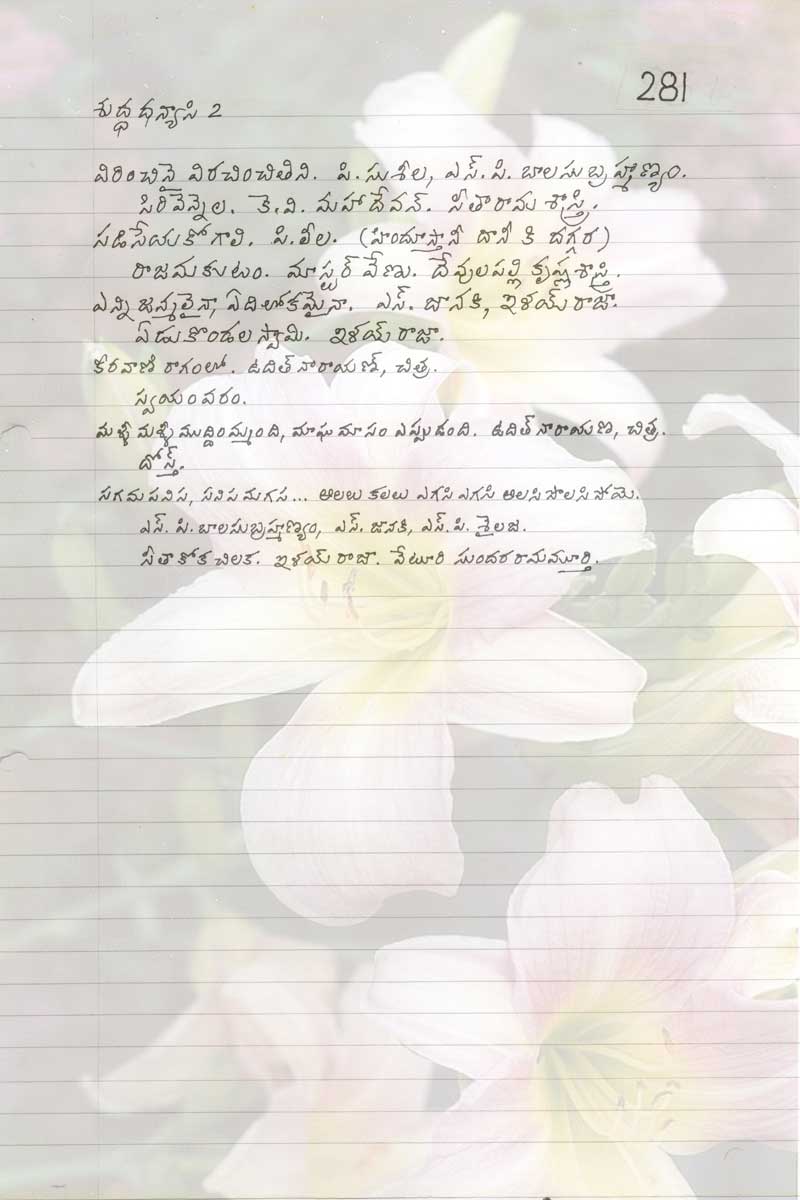 281
శుద్ధ ధన్యాసి 2
విరించినై విరచించితిని. పి. సుశీల, ఎస్. పి. బాలసుబ్రహ్మణ్యం.
సిరివెన్నెల. కె. వి. మహాదేవన్. సీతారామ శాస్త్రి.
సడిసేయకోగాలి. పి. లీల. (హిందూస్తానీ దానీ కి దగ్గర)
రాజమకుటం. మాస్టర్ వేణు. దేవులపల్లి కృష్ణశాస్త్రి.
ఎన్ని జన్మలైనా, ఏదిలోకమైనా. ఎస్. జానకి, ఇళయ్ రాజా.
ఏడుకొండలస్వామి. ఇళయ్ రాజా.
కీరవాణి రాగంలో. ఉదిత్ నారాయణ్, చిత్ర.
స్వయంవరం.
మళ్ళీ మళ్ళీ ముద్దిమ్మంది, మాఘమాసం ఎప్పుడంది. ఉదిత్ నారాయణ, చిత్ర.
దోస్త్.
సగమపనిస, సనిపమగస... అలలు కలలు ఎగసి ఎగసి అలసి సొలసి పోయె.
ఎస్. పి. బాలసుబ్రహ్మణ్యం, ఎస్. జానకి, ఎస్. పి. శైలజ.
సీతాకోకచిలక. ఇళయ్ రాజా. వేటూరి సుందరరామమూర్తి.